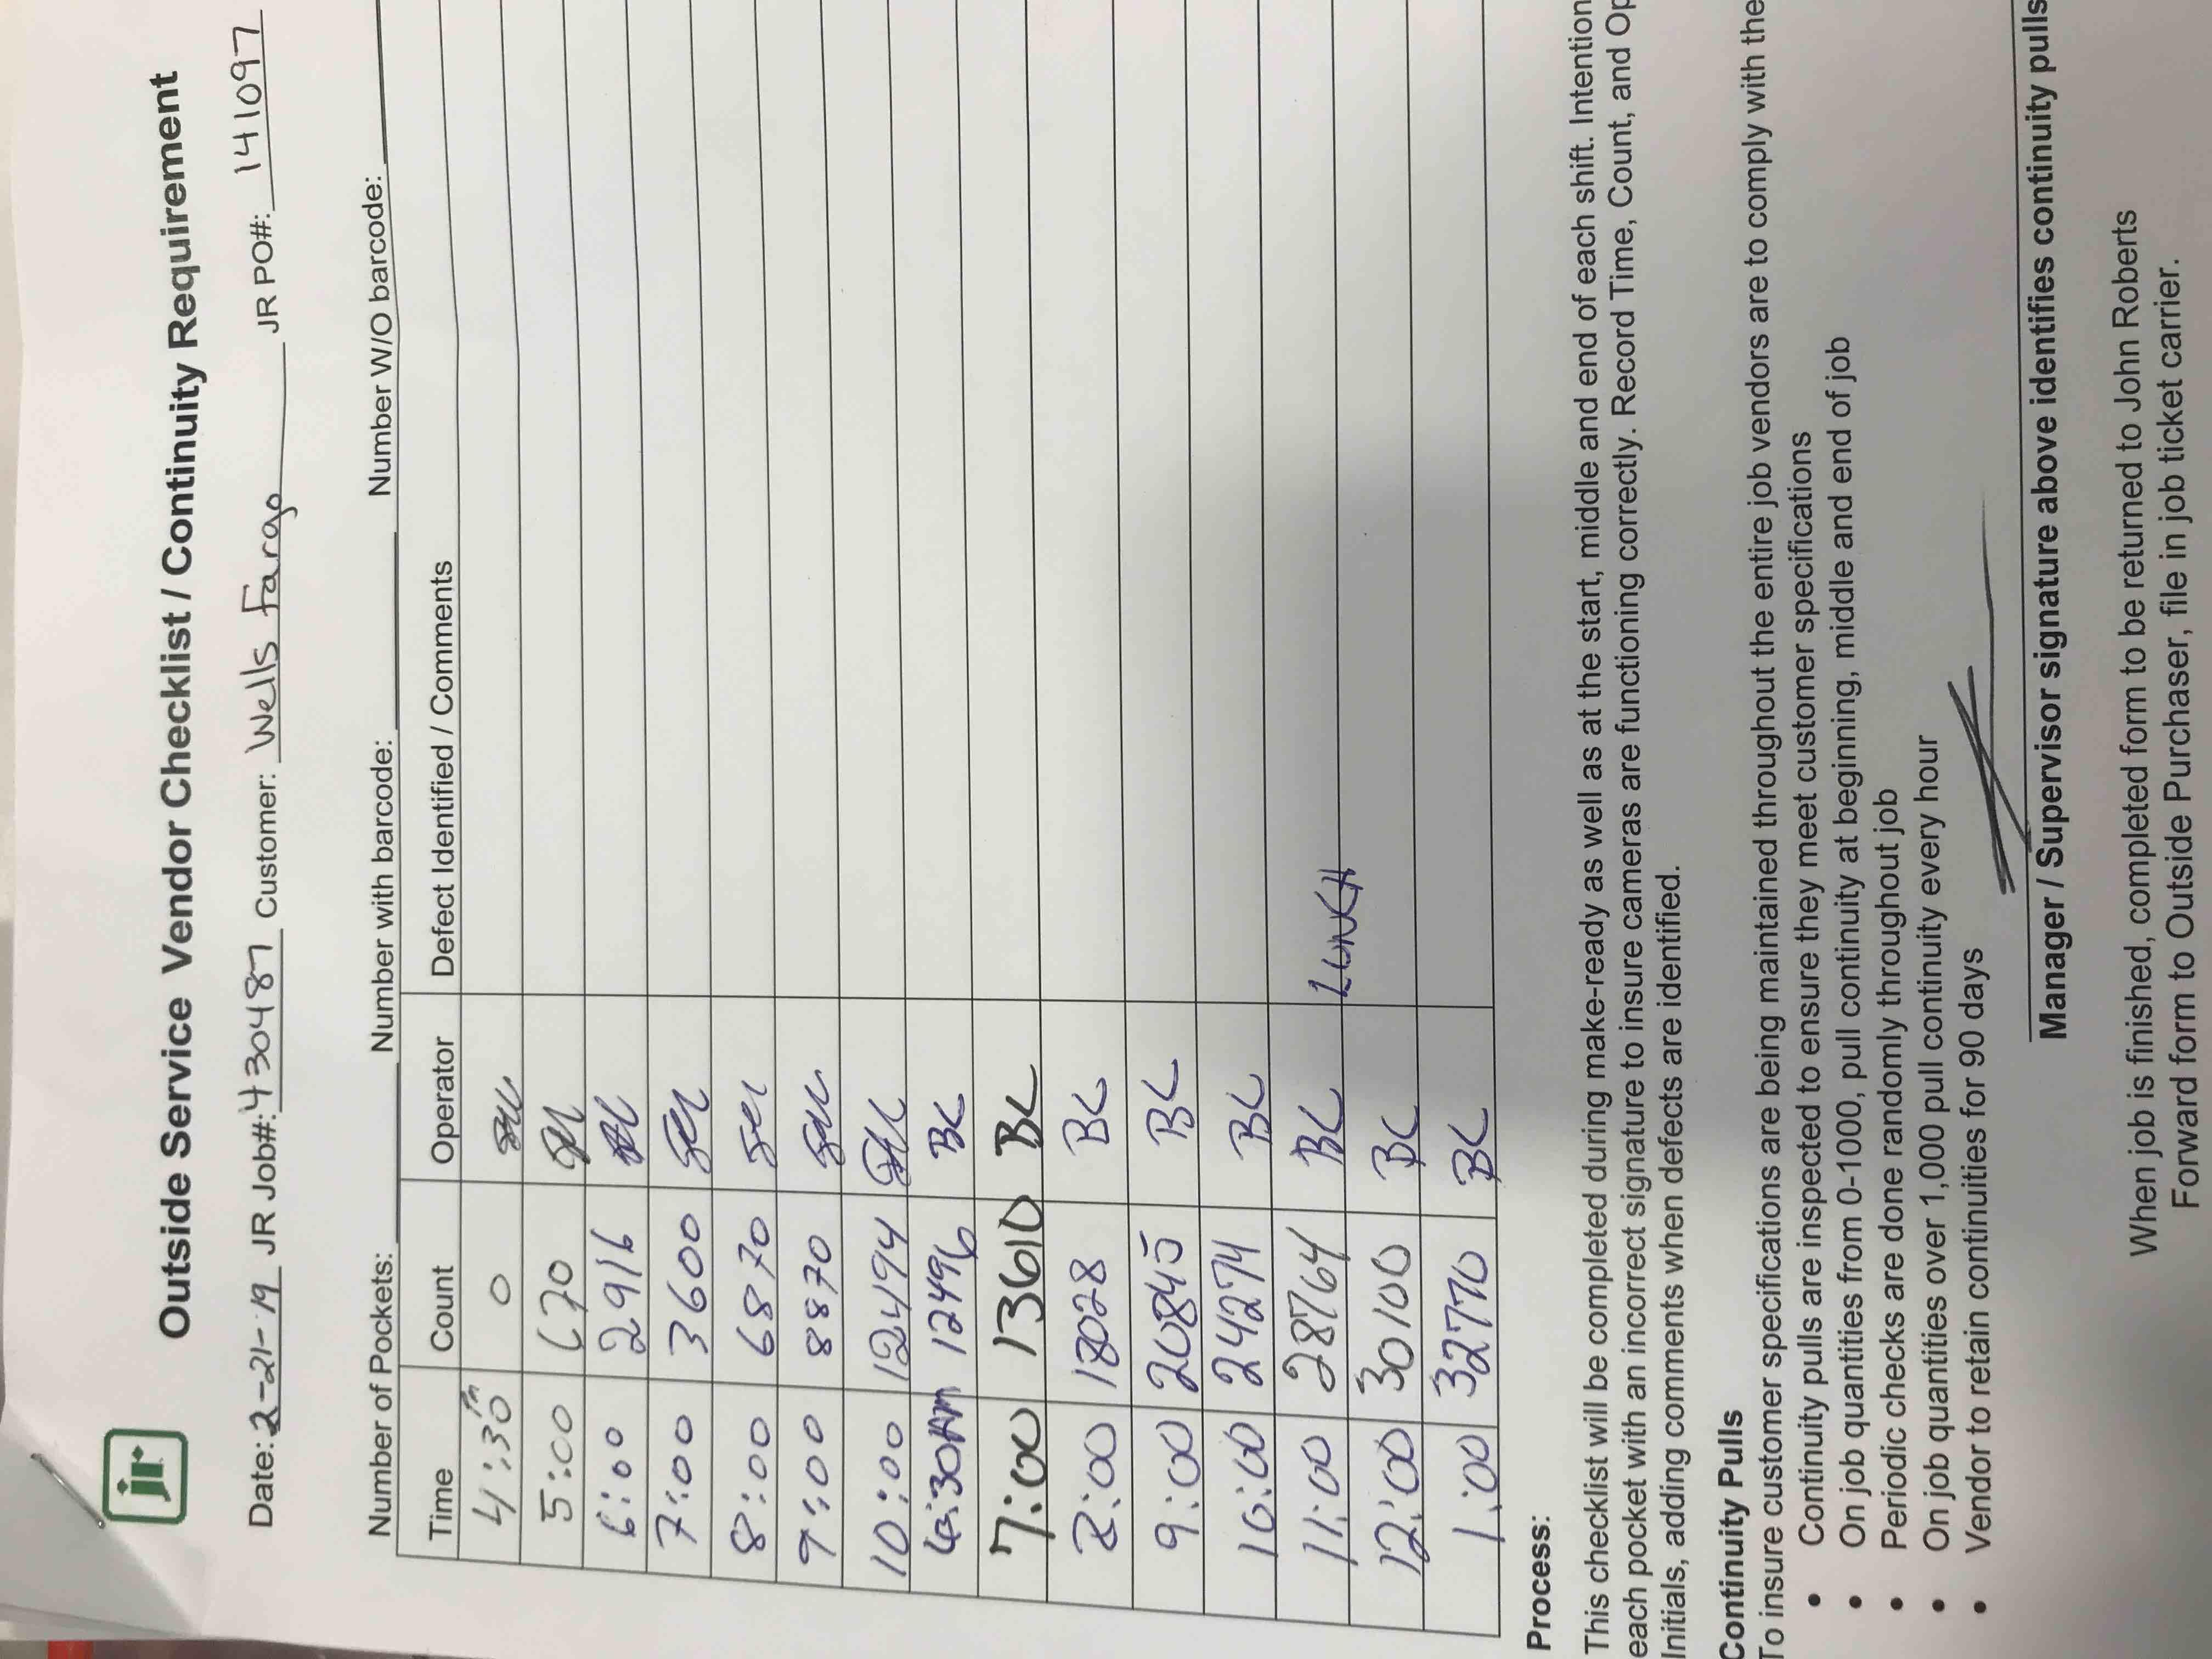 jr
Outside Service Vendor Checklist / Continuity Requirement
Date: 2-21-19 JR Job#: 430487 Customer: Wells Fargo JR PO#: 141097
Number of Pockets: Number with barcode: Number W/O barcode:
Time Count Operator Defect Identified / Comments
4:30 0
5:00 670
6:00 2916
7:00 3600
8:00 6870
9:00 8870
10:00 12494
6:30AM 12496 BC
7:00 13610 BC
8:00 18028 BC
9:00 20845 BC
10:00 24274 BC
11:00 28764 BC LUNCH
12:00 30100 BC
1:00 32770 BC
Process:
This checklist will be completed during make-ready as well as at the start, middle and end of each shift. Intention
each pocket with an incorrect signature to insure cameras are functioning correctly. Record Time, Count, and Op
Initials, adding comments when defects are identified.
Continuity Pulls
To insure customer specifications are being maintained throughout the entire job vendors are to comply with the
• Continuity pulls are inspected to ensure they meet customer specifications
• On job quantities from 0-1000, pull continuity at beginning, middle and end of job
• Periodic checks are done randomly throughout job
• On job quantities over 1,000 pull continuity every hour
• Vendor to retain continuities for 90 days
Manager / Supervisor signature above identifies continuity pulls
When job is finished, completed form to be returned to John Roberts
Forward form to Outside Purchaser, file in job ticket carrier.